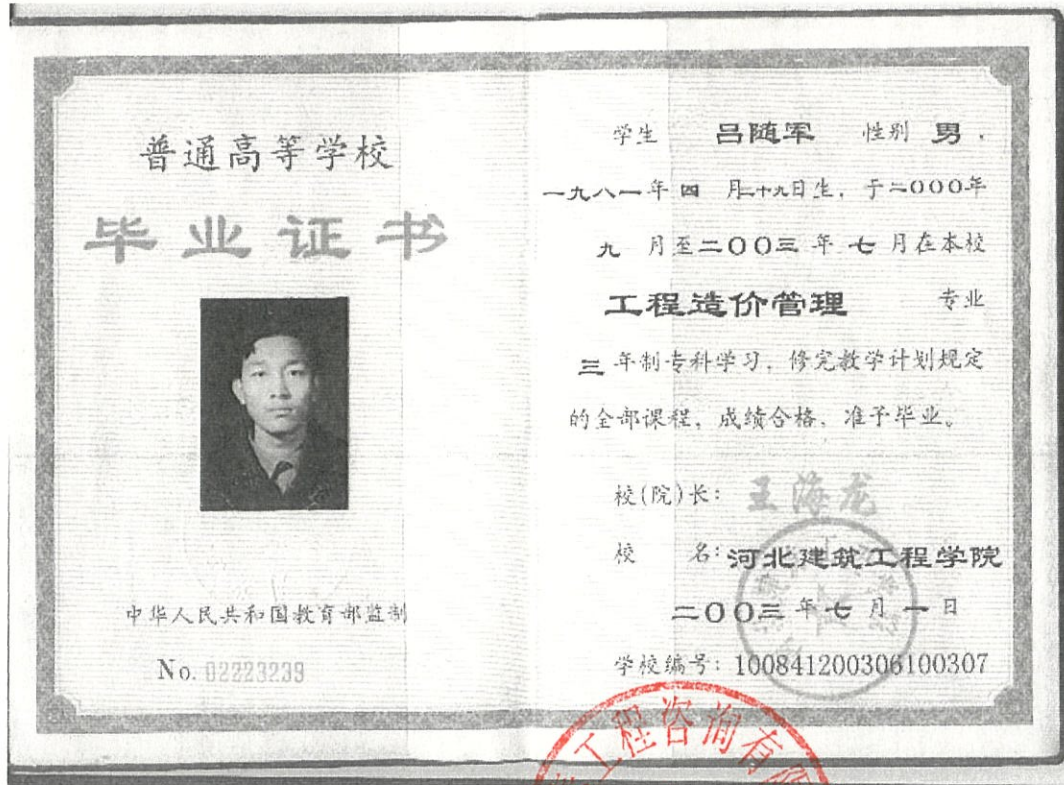 普通高等学校
毕业证书
中华人民共和国教育部监制
No. 02223239
学生 吕随军 性别 男，
一九八一年四月二十九日生，于二〇〇〇年
九月至二〇〇三年七月在本校
工程造价管理 专业
三年制专科学习，修完教学计划规定
的全部课程，成绩合格，准予毕业。
校(院)长：王海龙
校 名：河北建筑工程学院
二〇〇三年七月一日
学校编号：100841200306100307
工程咨询有限